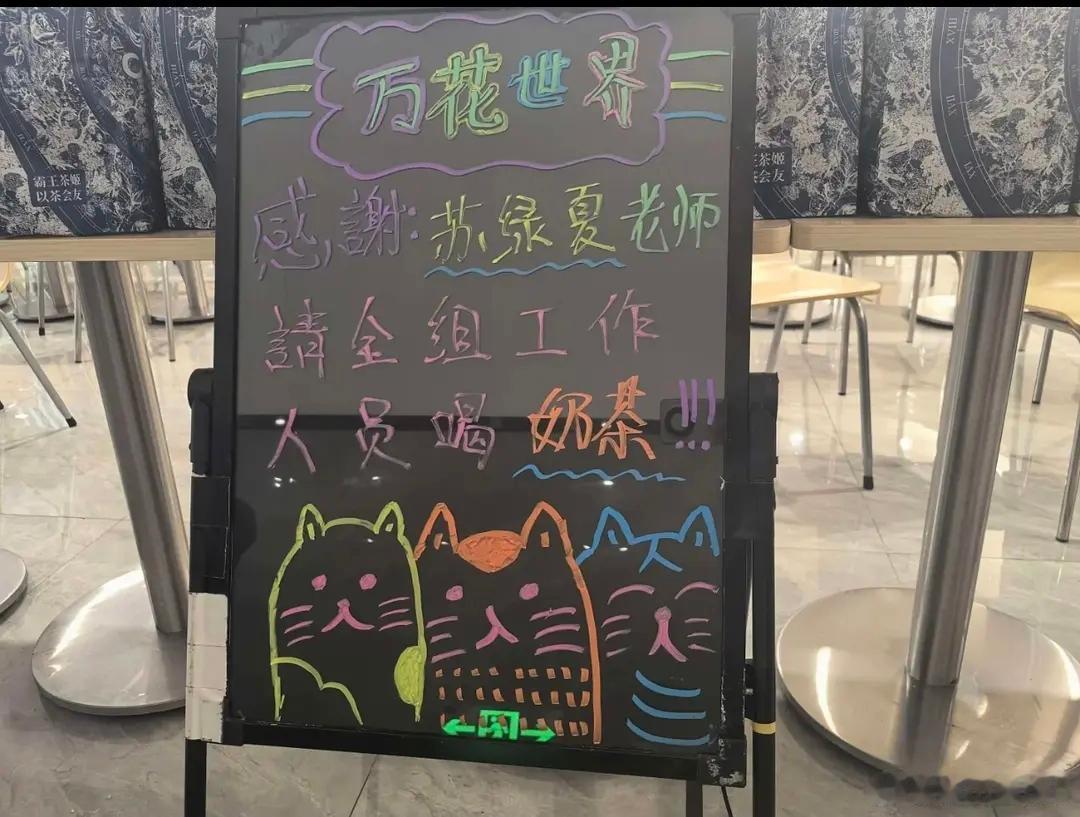 万花世界
感謝:苏绿夏老师
請全组工作
人员喝奶茶!!!
霸王茶姬
以茶会友
王茶姬
茶会友